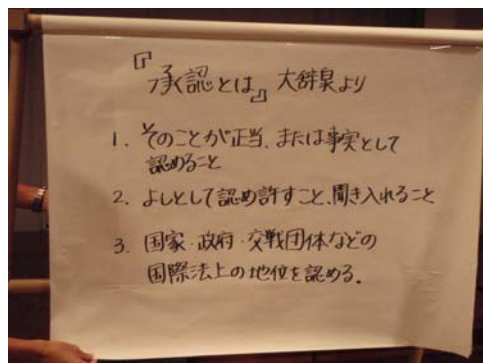 『承認とは』 大辞泉より
1. そのことが正当、または事実として
認めること
2. よしとして認め許すこと、聞き入れること
3. 国家・政府・交戦団体などの
国際法上の地位を認める。